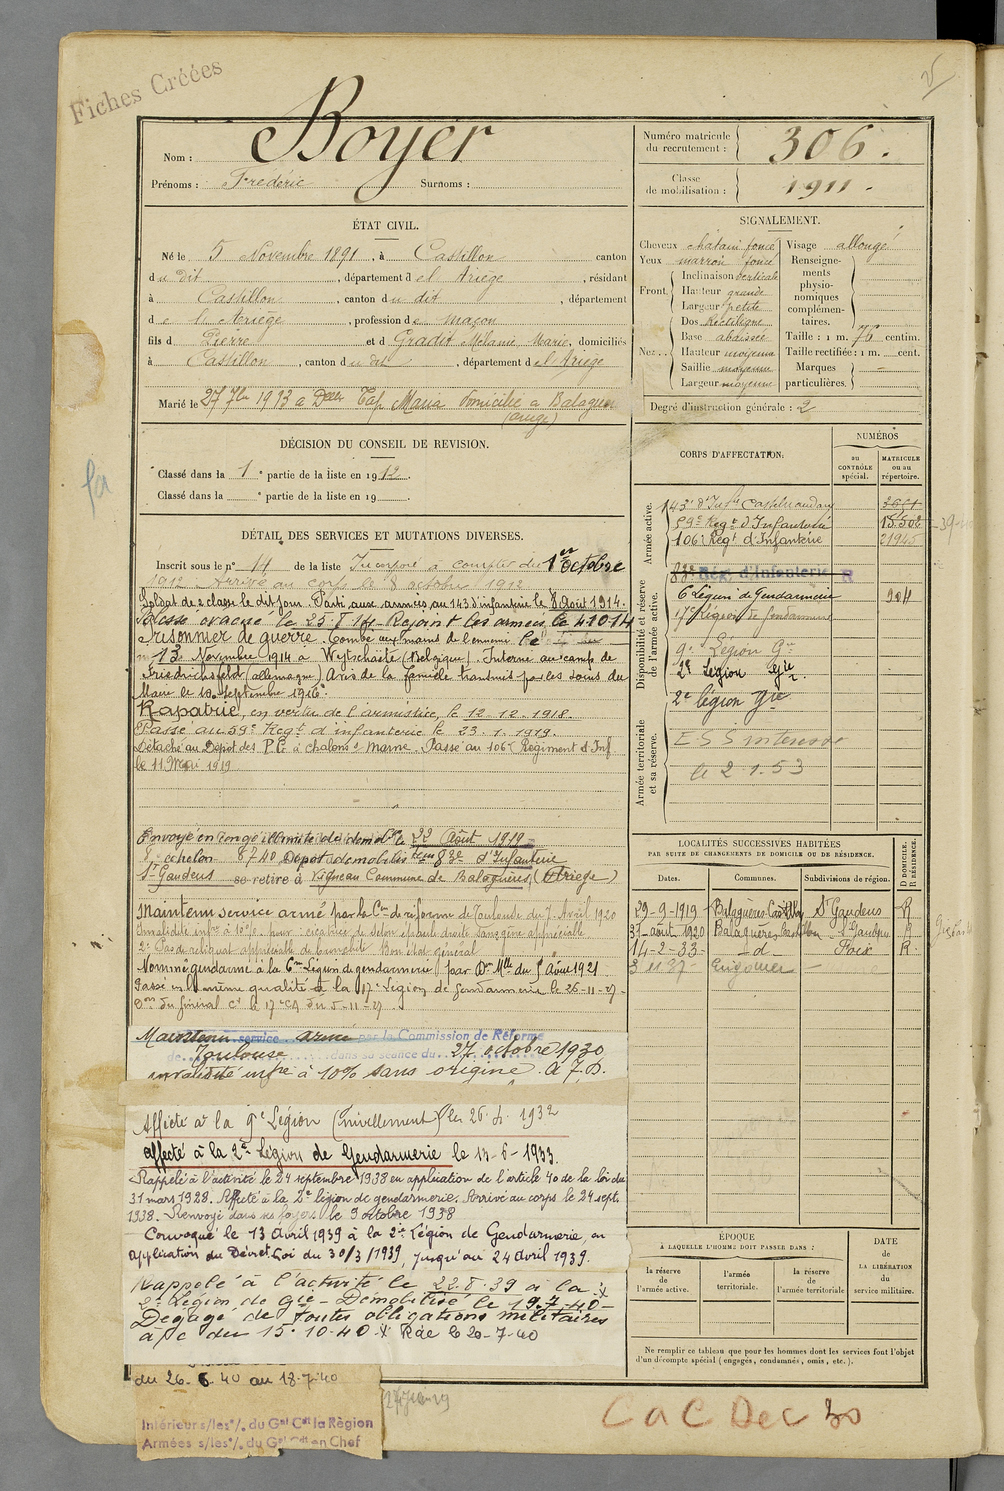 Fiches Créées
Nom : Boyer
Prénoms : Frédéric Surnoms :
Numéro matricule du recrutement : 306.
Classe de mobilisation : 1911.
ÉTAT CIVIL.
Né le 5 Novembre 1891, à Castillon canton
du dit, département de l'Ariège, résidant
à Castillon, canton du dit, département
de l'Ariège, profession de maçon
fils de Pierre et de Gradit Mélanie Marie, domiciliés
à Castillon, canton du dit, département de l'Ariège
Marié le 27 7bre 1913 à Delle Tap Maria domiciliée à Balaguères
(ariège)
SIGNALEMENT.
Cheveux châtain foncé
Yeux marron foncé
Front. Inclinaison verticale
Hauteur grande
Largeur petite
Nez. Dos Rectiligne
Base abaissée
Hauteur moyenne
Saillie moyenne
Largeur moyenne
Visage allongé
Renseignements physionomiques complémentaires.
Taille : 1 m. 76 centim.
Taille rectifiée : 1 m. cent.
Marques particulières. -
Degré d'instruction générale : 2
DÉCISION DU CONSEIL DE REVISION.
Classé dans la 1e partie de la liste en 1912.
Classé dans la e partie de la liste en 19 .
DÉTAIL DES SERVICES ET MUTATIONS DIVERSES.
Inscrit sous le n° 14 de la liste Incorporé à compter du 1er octobre
1912 Arrivé au corps le 8 octobre 1912
Soldat de 2e classe le dit jour. Parti aux armées au 143 d'infanterie le 8 Août 1914.
Blessé évacué le 25-8-14 - Rejoint les armées le 4-10-14
Prisonnier de guerre. Tombé aux mains de l'ennemi le
13 Novembre 1914 à Wytschaete (Belgique). Interné au camp de
Friedrichsfeld (allemagne) Avis de la famille transmis par les soins du
Maire le 10 septembre 1916.
Rapatrié, en vertu de l'armistice, le 12-12-1918.
Passé au 59e Régt d'infanterie le 23-1-1919.
Détaché au Dépôt des P.G. à Chalons s/ Marne. Passé au 106e Régiment d'Inf
le 11 Mai 1919
Envoyé en congé illimité de démobon le 22 Août 1919
8e échelon 8740 Dépôt démobilisateur 83e d'Infanterie
St-Gaudens se retire à Vigneau Commune de Balaguères, (Ariège)
Maintenu service armé par la Con de réforme de Toulouse du 7 Avril 1920
Invalidité infre à 10% pour : cicatrice de selon épaule droite sans gêne appréciable
2° Pas de reliquat appréciable de bronchite Bon état général
Nommé gendarme à la 6me Légion de gendarmerie par Don Mlle du 5 Août 1921
Passé en la même qualité à la 17e Légion de gendarmerie le 26-11-27 -
Don du Général Ct le 17e CA du 5-11-27 -
Maintenu service armé par la Commission de Réforme
de Toulouse dans sa séance du 27 octobre 1930
invalidité infre à 10% sans origine. A.7.D.
Affecté à la 9e Légion (nivellement) le 26.4.1932
affecté à la 2e Légion de Gendarmerie le 13-6-1933.
Rappelé à l'activité le 24 septembre 1938 en application de l'article 40 de la loi du
31 mars 1928. Affecté à la 2e légion de gendarmerie. Arrivé au corps le 24 sept.
1938. Renvoyé dans ses foyers le 9 octobre 1938
Convoqué le 13 Avril 1939 à la 2e Légion de Gendarmerie, en
application du Décret Loi du 30/3/1939, jusqu'au 24 Avril 1939.
Rappelé à l'activité le 22.8.39 à la x
2e Légion de Gie - Démobilisé le 19.7.40 -
Dégagé de toutes obligations militaires
à/c du 15.10.40 x Rde le 20-7-40
du 26-6-40 au 18-7-40
Intérieur s/les °/. du Gal Cdt la Région
Armées s/les °/. du Gal Cdt en Chef
CORPS D'AFFECTATION.
NUMÉROS
au CONTRÔLE spécial.
MATRICULE ou au répertoire.
Armée active.
143e d'Infrie Castelnaudary 3651
59e Regt d'Infanterie 15502
106e Regt d'Infanterie 21945
Disponibilité et réserve de l'armée active.
83e Rég. d'Infanterie R
6 Légion de Gendarmerie 904
17e Légion de Gendarmerie
9e Légion Gie
2e Légion Gie
2e légion Gie
Armée territoriale et sa réserve.
le 2.1.53
LOCALITÉS SUCCESSIVES HABITÉES
PAR SUITE DE CHANGEMENTS DE DOMICILE OU DE RÉSIDENCE.
Dates. Communes. Subdivisions de région. D DOMICILE. R RÉSIDENCE.
29-9-1919 Balaguères Castillon St Gaudens R
31-août 1920 Balaguères Castillon St Gaudens R
14-2-33 - d - Foix R.
3 11 37 -
ÉPOQUE
À LAQUELLE L'HOMME DOIT PASSER DANS :
la réserve de l'armée active.
l'armée territoriale.
la réserve de l'armée territoriale
DATE de LA LIBÉRATION du service militaire.
Ne remplir ce tableau que pour les hommes dont les services font l'objet
d'un décompte spécial (engagés, condamnés, omis, etc.).
CaC Dec 30